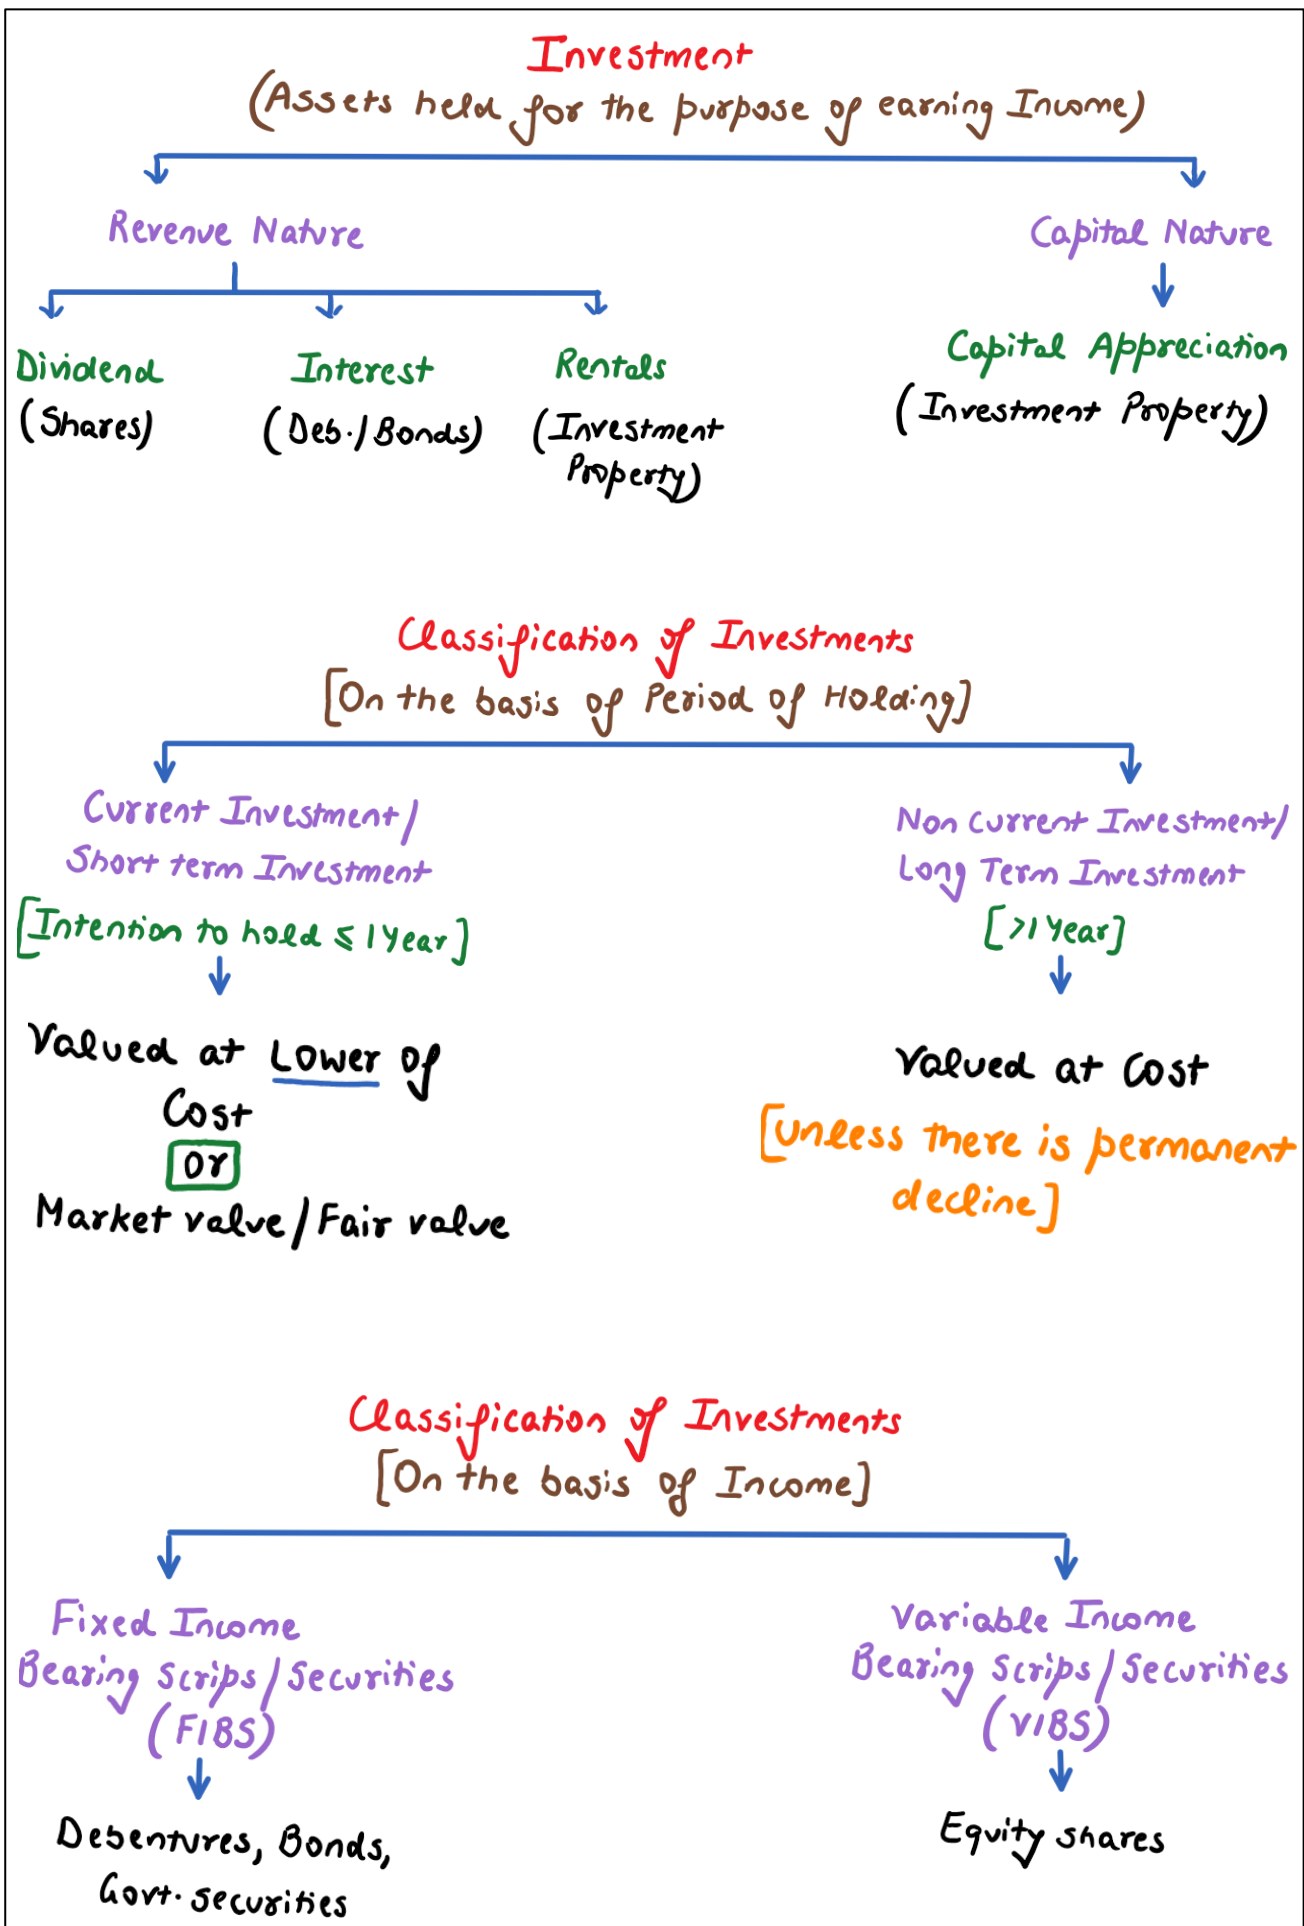 Investment
(Assets held for the purpose of earning Income)
Revenue Nature
Capital Nature
Dividend
(Shares)
Interest
(Deb./Bonds)
Rentals
(Investment
Property)
Capital Appreciation
(Investment Property)
Classification of Investments
[On the basis of Period of Holding]
Current Investment/
Short term Investment
[Intention to hold ≤ 1 Year]
Valued at Lower of
Cost
Or
Market value/Fair value
Non Current Investment/
Long Term Investment
[>1 Year]
Valued at Cost
[Unless there is permanent
decline]
Classification of Investments
[On the basis of Income]
Fixed Income
Bearing Scrips/Securities
(FIBS)
Debentures, Bonds,
Govt. securities
Variable Income
Bearing Scrips/Securities
(VIBS)
Equity shares